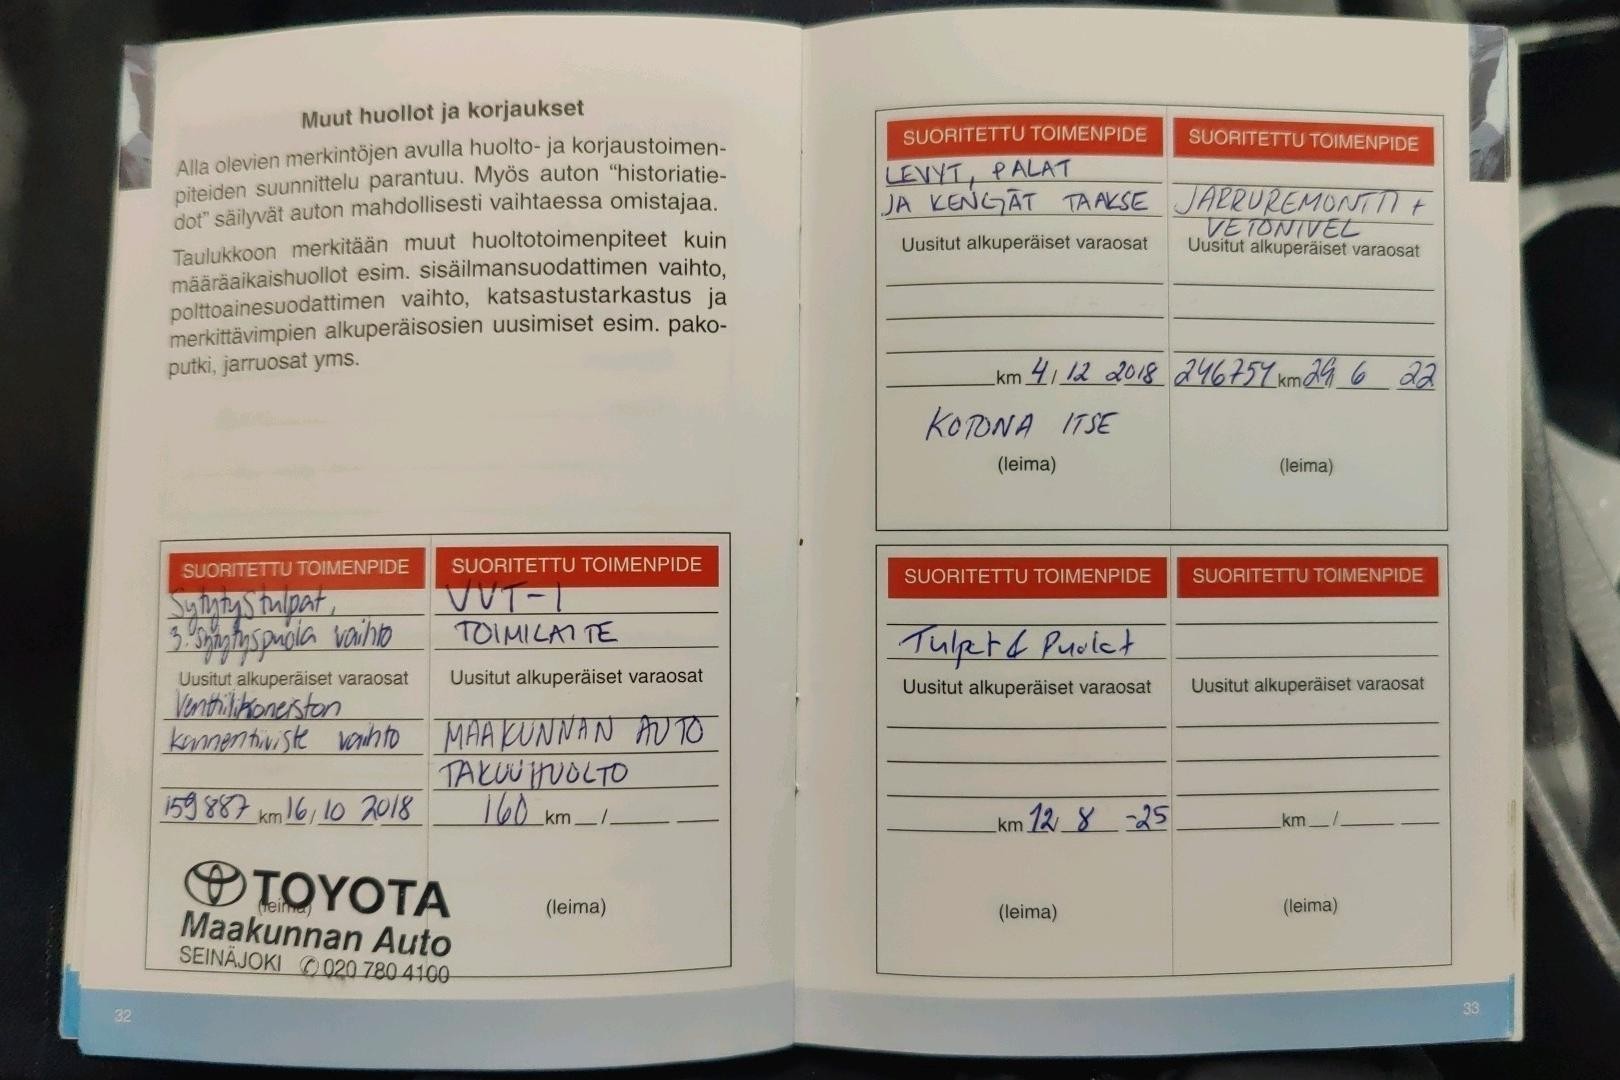 Muut huollot ja korjaukset
Alla olevien merkintöjen avulla huolto- ja korjaustoimen-
piteiden suunnittelu parantuu. Myös auton "historiatie-
dot" säilyvät auton mahdollisesti vaihtaessa omistajaa.
Taulukkoon merkitään muut huoltotoimenpiteet kuin
määräaikaishuollot esim. sisäilmansuodattimen vaihto,
polttoainesuodattimen vaihto, katsastustarkastus ja
merkittävimpien alkuperäisosien uusimiset esim. pako-
putki, jarruosat yms.
SUORITETTU TOIMENPIDE
Sytytystulpat,
3. sytytyspuola vaihto
Uusitut alkuperäiset varaosat
Venttiilikoneiston
kannentiiviste vaihto
159887 km 16/10 2018
(leima)
TOYOTA
Maakunnan Auto
SEINÄJOKI ✆ 020 780 4100
SUORITETTU TOIMENPIDE
VVT-I
TOIMILAITE
Uusitut alkuperäiset varaosat
MAAKUNNAN AUTO
TAKUUHUOLTO
160 km /
(leima)
32
SUORITETTU TOIMENPIDE
LEVYT, PALAT
JA KENGÄT TAAKSE
Uusitut alkuperäiset varaosat
km 4/12 2018
KOTONA ITSE
(leima)
SUORITETTU TOIMENPIDE
JARRUREMONTTI +
VETONIVEL
Uusitut alkuperäiset varaosat
246754 km 29 6 22
(leima)
SUORITETTU TOIMENPIDE
Tulpat & Puolat
Uusitut alkuperäiset varaosat
km 12 8 -25
(leima)
SUORITETTU TOIMENPIDE
Uusitut alkuperäiset varaosat
km /
(leima)
33